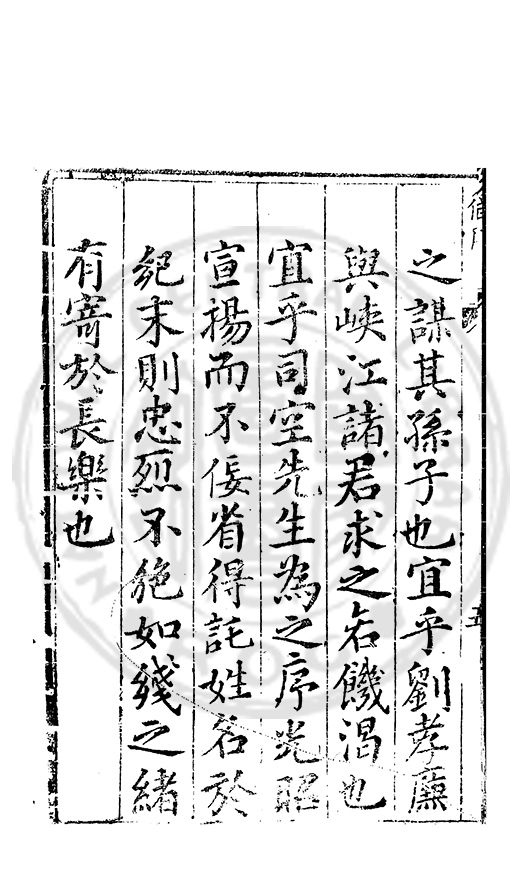 之謀其孫子也宜乎劉孝廉
與峽江諸君求之若饑渴也
宜乎司空先生為之序光昭
宣揚而不佞省得託姓名於
紀末則忠烈不絶如綫之緒
有寄於長樂也
五